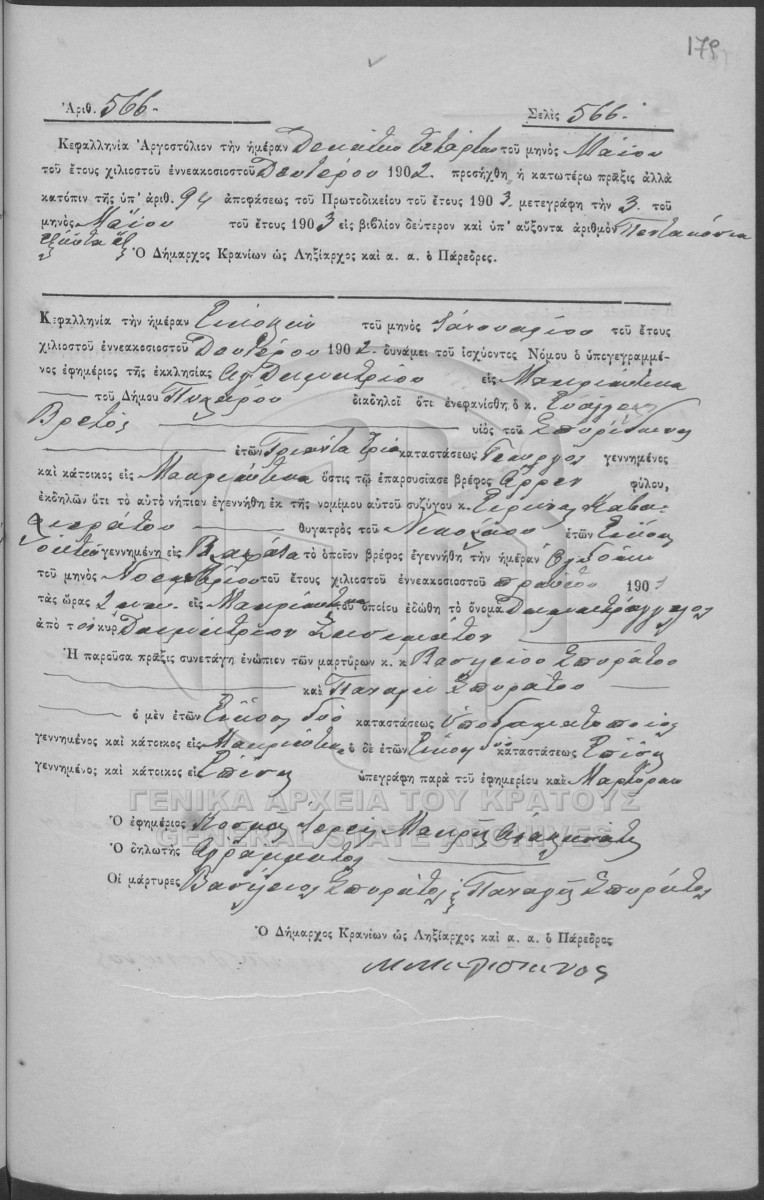 179
Ἀριθ. 566. Σελὶς 566.
Κεφαλληνία Ἀργοστόλιον τὴν ἡμέραν Δεκάτην τετάρτην τοῦ μηνὸς Μαΐου
τοῦ ἔτους χιλιοστοῦ ἐννεακοσιοστοῦ Δευτέρου 1902. προσήχθη ἡ κατωτέρω πρᾶξις ἀλλὰ
κατόπιν τῆς ὑπ' ἀριθ. 94 ἀποφάσεως τοῦ Πρωτοδικείου τοῦ ἔτους 1903. μετεγράφη τὴν 3. τοῦ
μηνὸς Μαΐου τοῦ ἔτους 1903 εἰς βιβλίον δεύτερον καὶ ὑπ' αὔξοντα ἀριθμὸν Πεντακόσια
ἑξῆντα ἕξ Ὁ Δήμαρχος Κρανίων ὡς Ληξίαρχος καὶ α. α. ὁ Πάρεδρος.
Κεφαλληνία τὴν ἡμέραν Εἰκοστὴν τοῦ μηνὸς Ἰανουαρίου τοῦ ἔτους
χιλιοστοῦ ἐννεακοσιοστοῦ Δευτέρου 1902. δυνάμει τοῦ ἰσχύοντος Νόμου ὁ ὑπογεγραμμέ-
νος ἐφημέριος τῆς ἐκκλησίας Ἁγ Δημητρίου εἰς Μακριώτικα
τοῦ Δήμου Πυλαρέων διαδηλοῖ ὅτι ἐνεφανίσθη ὁ κ. Εὐάγγελος
Βρετός υἱὸς τοῦ Σπυρίδωνος
ἐτῶν Τριάντα τρία καταστάσεως Γεωργὸς γεννημένος
καὶ κάτοικος εἰς Μακριώτικα ὅστις τῷ ἐπαρουσίασε βρέφος ἄρρεν φύλου,
ἐκδηλῶν ὅτι τὸ αὐτὸ νήπιον ἐγεννήθη ἐκ τῆς νομίμου αὐτοῦ συζύγου κ. Εἰρήνης Καβα-
λιεράτου θυγατρὸς τοῦ Νικολάου ἐτῶν Εἴκοσι
ὀκτὼ γεννημένη εἰς Βλαχάτα τὸ ὁποῖον βρέφος ἐγεννήθη τὴν ἡμέραν Ὀγδόην
τοῦ μηνὸς Νοεμβρίου τοῦ ἔτους χιλιοστοῦ ἐννεακοσιοστοῦ πρώτου 1901
τὰς ὥρας 2 μ.μ. εἰς Μακριώτικα τοῦ ὁποίου ἐδώθη τὸ ὄνομα Δημητράγγελος
ἀπὸ τὸν κὺρ Δημήτριον
Ἡ παροῦσα πρᾶξις συνετάγη ἐνώπιον τῶν μαρτύρων κ. κ Βασιλείου Σπυράτου
καὶ Παναγῆ Σπυράτου
ὁ μὲν ἐτῶν Εἴκοσι δύο καταστάσεως ὑποδηματοποιός
γεννημένος καὶ κάτοικος εἰς Μακριώτικα ὁ δὲ ἐτῶν Εἴκοσι καταστάσεως Ἐπίσης
γεννημένος καὶ κάτοικος εἰς Ἐπίσης ὑπεγράφη παρὰ τοῦ ἐφημερίου καὶ Μαρτύρων
ΓΕΝΙΚΑ ΑΡΧΕΙΑ ΤΟΥ ΚΡΑΤΟΥΣ
GENERAL STATE ARCHIVES
Ὁ ἐφημέριος Κοσμᾶς Ἱερεὺς Μακρῆς
Ὁ δηλωτής Ἀγράμματος
Οἱ μάρτυρες Βασίλειος Σπυράτος Παναγῆς Σπυράτος
Ὁ Δήμαρχος Κρανίων ὡς Ληξίαρχος καὶ α. α. ὁ Πάρεδρος